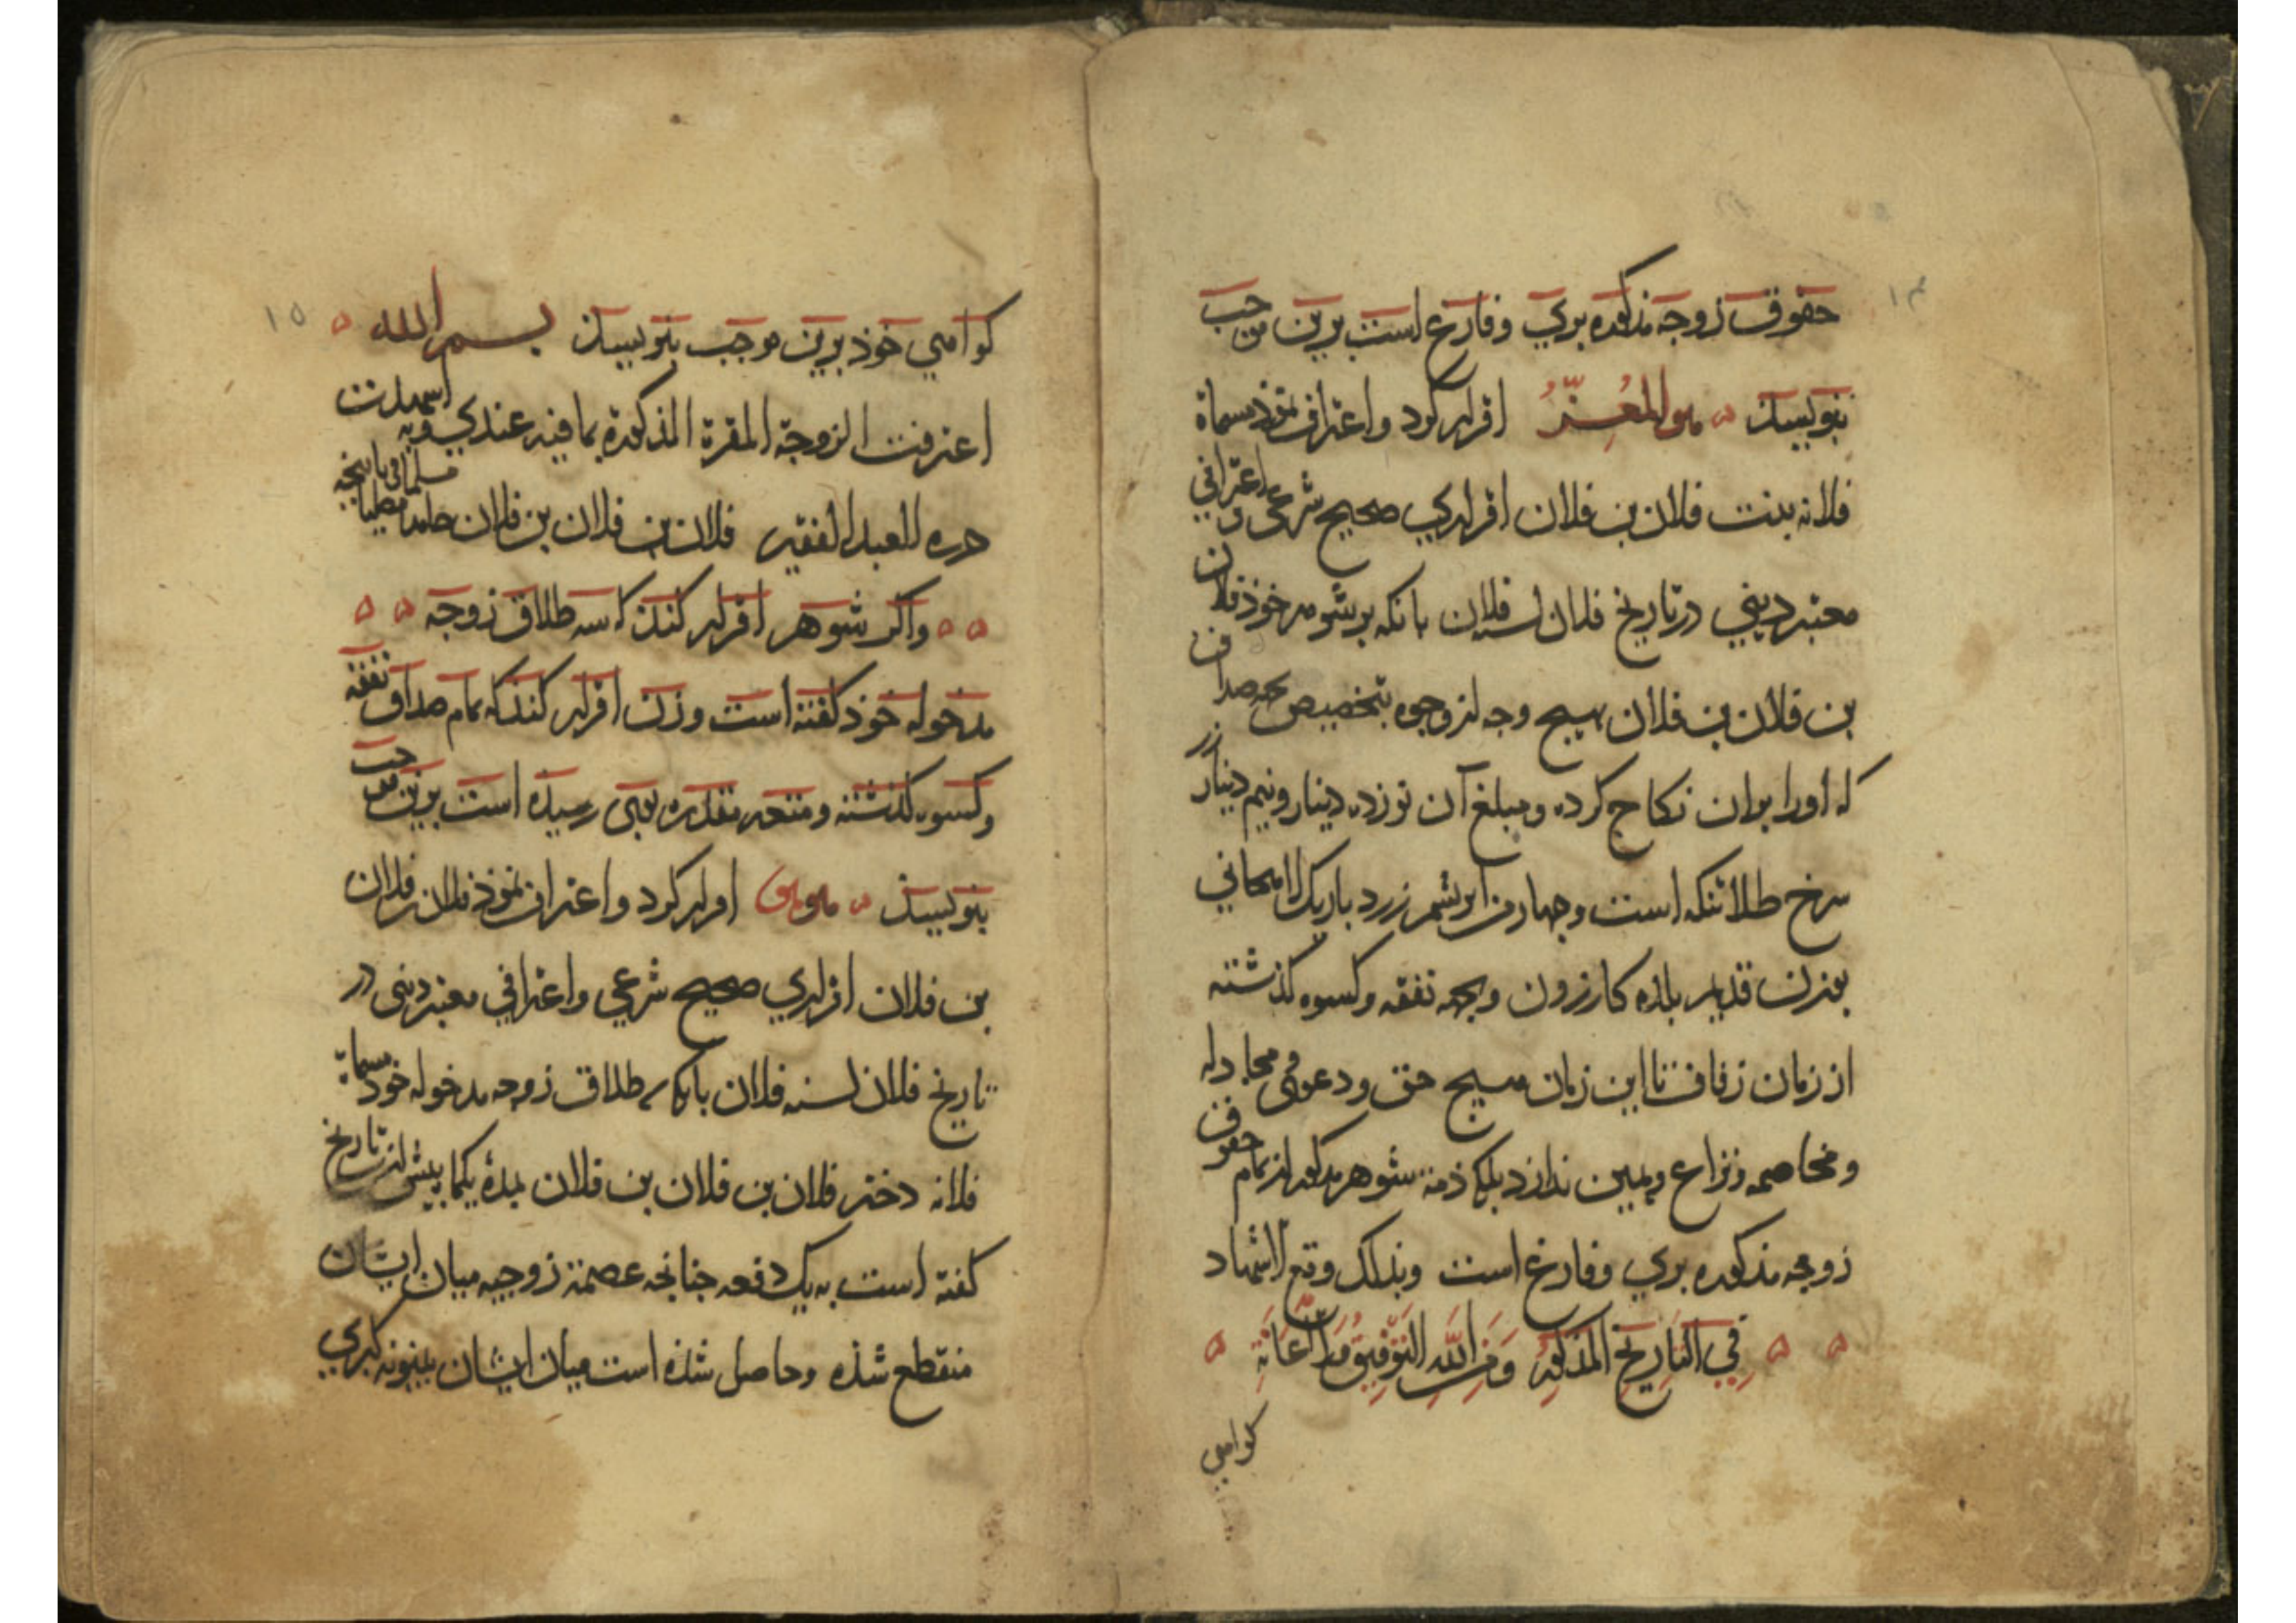 ۱۴
حقوق زوجه مذکوره بري و فارغ است برین موجب
بنویسند ه هو المعز اقرار کرد و اعتراف نموذ مسماة
فلانه بنت فلان بن فلان اقراري صحیح شرعي و اعترافي
معتبر دیني در تاریخ فلان لسنه فلان بانکه بر شوهر خوذ فلان
بن فلان بن فلان بهیچ وجه از وجوه بتخصیص بجهه صداق
که او را بران نکاح کرده و مبلغ آن نوزده دینار و نیم دینار زر
سرخ طلا تنکه است و چهار من ابریشم زرد باریک لاهجاني
بوزن قدیم بلده کازرون و بجهه نفقه و کسوه کذشته
از زمان زفاف تا این زمان هیچ حق و دعوی و مجادله
و مخاصمه و نزاع و یمین ندارد بلکه ذمة شوهر مذکور از تمام حقوق
زوجه مذکوره بري و فارغ است وبذلک وقع الاشهاد
في التاریخ المذکور ومن الله التوفیق والاعانة
کواهي
۱۵
کواهي خوذ برین موجب بنویسند بسم الله
اعترفت الزوجة المقرة المذکورة بما فیه عندي وبه اشهدت
حرره العبد الفقیر فلان بن فلان بن فلان حامدا مصلیا مسلما
واکر شوهر اقرار کند که سه طلاق زوجه
مدخوله خوذ کفته است و زن اقرار کند که تمام صداق و نفقه
و کسوه کذشته و متعه مقدره بوی رسیده است برین موجب
بنویسند ه هو اقرار کرد و اعتراف نموذ فلان بن فلان
بن فلان اقراري صحیح شرعي و اعترافي معتبر دینی در
تاریخ فلان لسنه فلان بانکه سه طلاق زوجه مدخوله خوذ مسماة
فلانه دختر فلان بن فلان بن فلان پیش از تاریخ
کفته است به یک دفعه چنانچه عصمة زوجیه میان ایشان
منقطع شذه و حاصل شذه است میان ایشان بینونه کبري